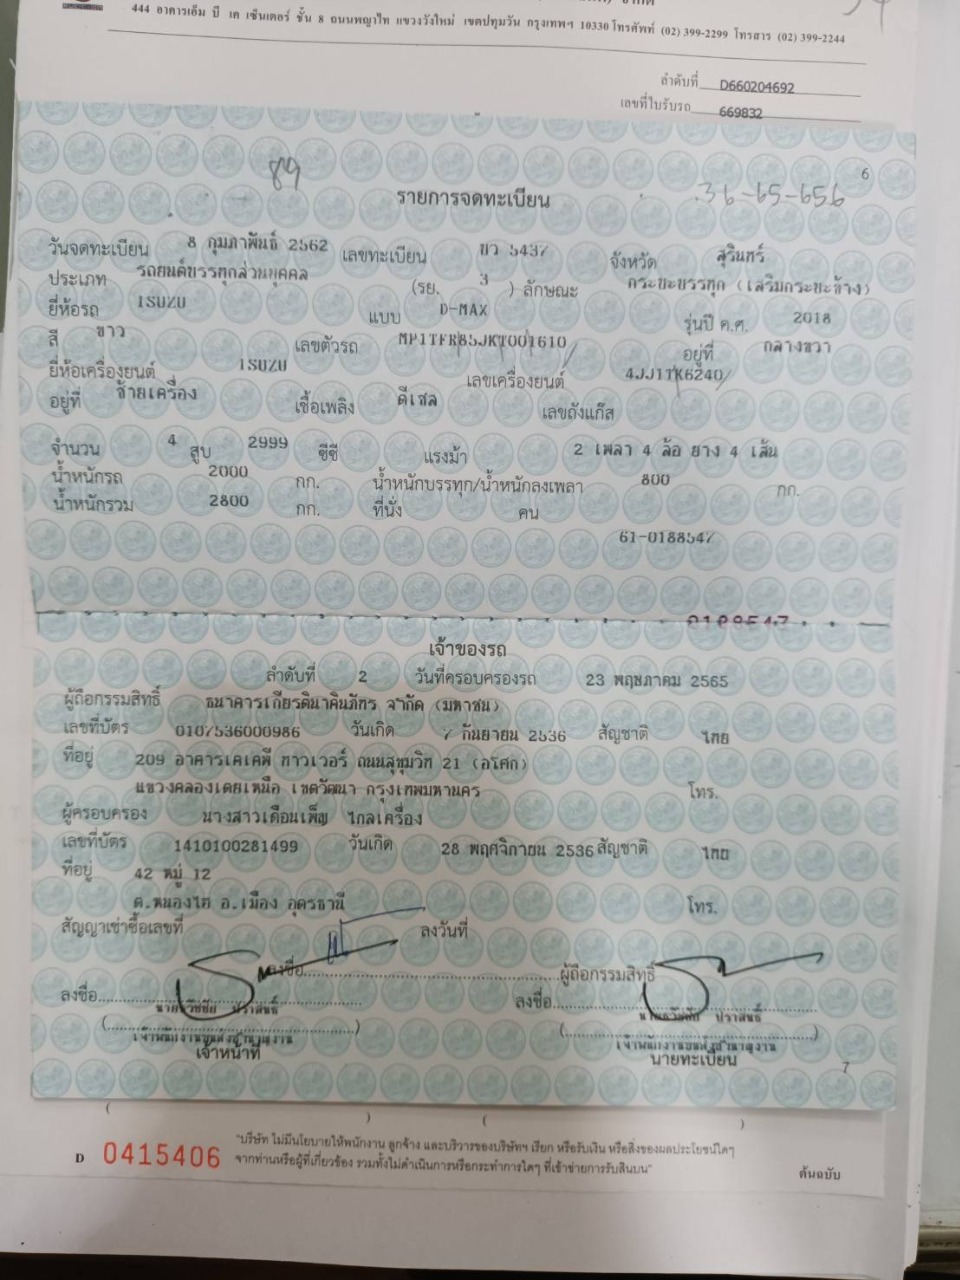 444 อาคารเอ็ม บี เค เซ็นเตอร์ ชั้น 8 ถนนพญาไท แขวงวังใหม่ เขตปทุมวัน กรุงเทพฯ 10330 โทรศัพท์ (02) 399-2299 โทรสาร (02) 399-2244
ลำดับที่ D660204692
เลขที่ใบรับรถ 669832
6
89
รายการจดทะเบียน
36-65-656
วันจดทะเบียน 8 กุมภาพันธ์ 2562 เลขทะเบียน ขว 5437 จังหวัด สุรินทร์
ประเภท รถยนต์บรรทุกส่วนบุคคล (รย. 3 ) ลักษณะ กระบะบรรทุก (เสริมกระบะข้าง)
ยี่ห้อรถ ISUZU แบบ D-MAX รุ่นปี ค.ศ. 2018
สี ขาว เลขตัวรถ MP1TFR85JKT001610 อยู่ที่ กลางขวา
ยี่ห้อเครื่องยนต์ ISUZU เลขเครื่องยนต์ 4JJ1TK6240
อยู่ที่ ซ้ายเครื่อง เชื้อเพลิง ดีเซล เลขถังแก๊ส
จำนวน 4 สูบ 2999 ซีซี แรงม้า 2 เพลา 4 ล้อ ยาง 4 เส้น
น้ำหนักรถ 2000 กก. น้ำหนักบรรทุก/น้ำหนักลงเพลา 800 กก.
น้ำหนักรวม 2800 กก. ที่นั่ง คน
61-0188547
0188547
เจ้าของรถ
ลำดับที่ 2 วันที่ครอบครองรถ 23 พฤษภาคม 2565
ผู้ถือกรรมสิทธิ์ ธนาคารเกียรตินาคินภัทร จำกัด (มหาชน)
เลขที่บัตร 0107536000986 วันเกิด 7 กันยายน 2536 สัญชาติ ไทย
ที่อยู่ 209 อาคารเคเคพี ทาวเวอร์ ถนนสุขุมวิท 21 (อโศก)
แขวงคลองเตยเหนือ เขตวัฒนา กรุงเทพมหานคร โทร.
ผู้ครอบครอง นางสาวเดือนเพ็ญ ไกลเครื่อง
เลขที่บัตร 1410100281499 วันเกิด 28 พฤศจิกายน 2536 สัญชาติ ไทย
ที่อยู่ 42 หมู่ 12
ต.หนองไฮ อ.เมือง อุดรธานี โทร.
สัญญาเช่าซื้อเลขที่ ลงวันที่
ลงชื่อ ผู้ถือกรรมสิทธิ์
ลงชื่อ ลงชื่อ
ปราสนธิ์ ปราสนธิ์
เจ้าพนักงานขนส่งชำนาญงาน เจ้าพนักงานขนส่งชำนาญงาน
เจ้าหน้าที่ นายทะเบียน
7
D 0415406
"บริษัท ไม่มีนโยบายให้พนักงาน ลูกจ้าง และบริวารของบริษัทฯ เรียก หรือรับเงิน หรือสิ่งของผลประโยชน์ใดๆ
จากท่านหรือผู้ที่เกี่ยวข้อง รวมทั้งไม่ดำเนินการหรือกระทำการใดๆ ที่เข้าข่ายการรับสินบน"
ต้นฉบับ